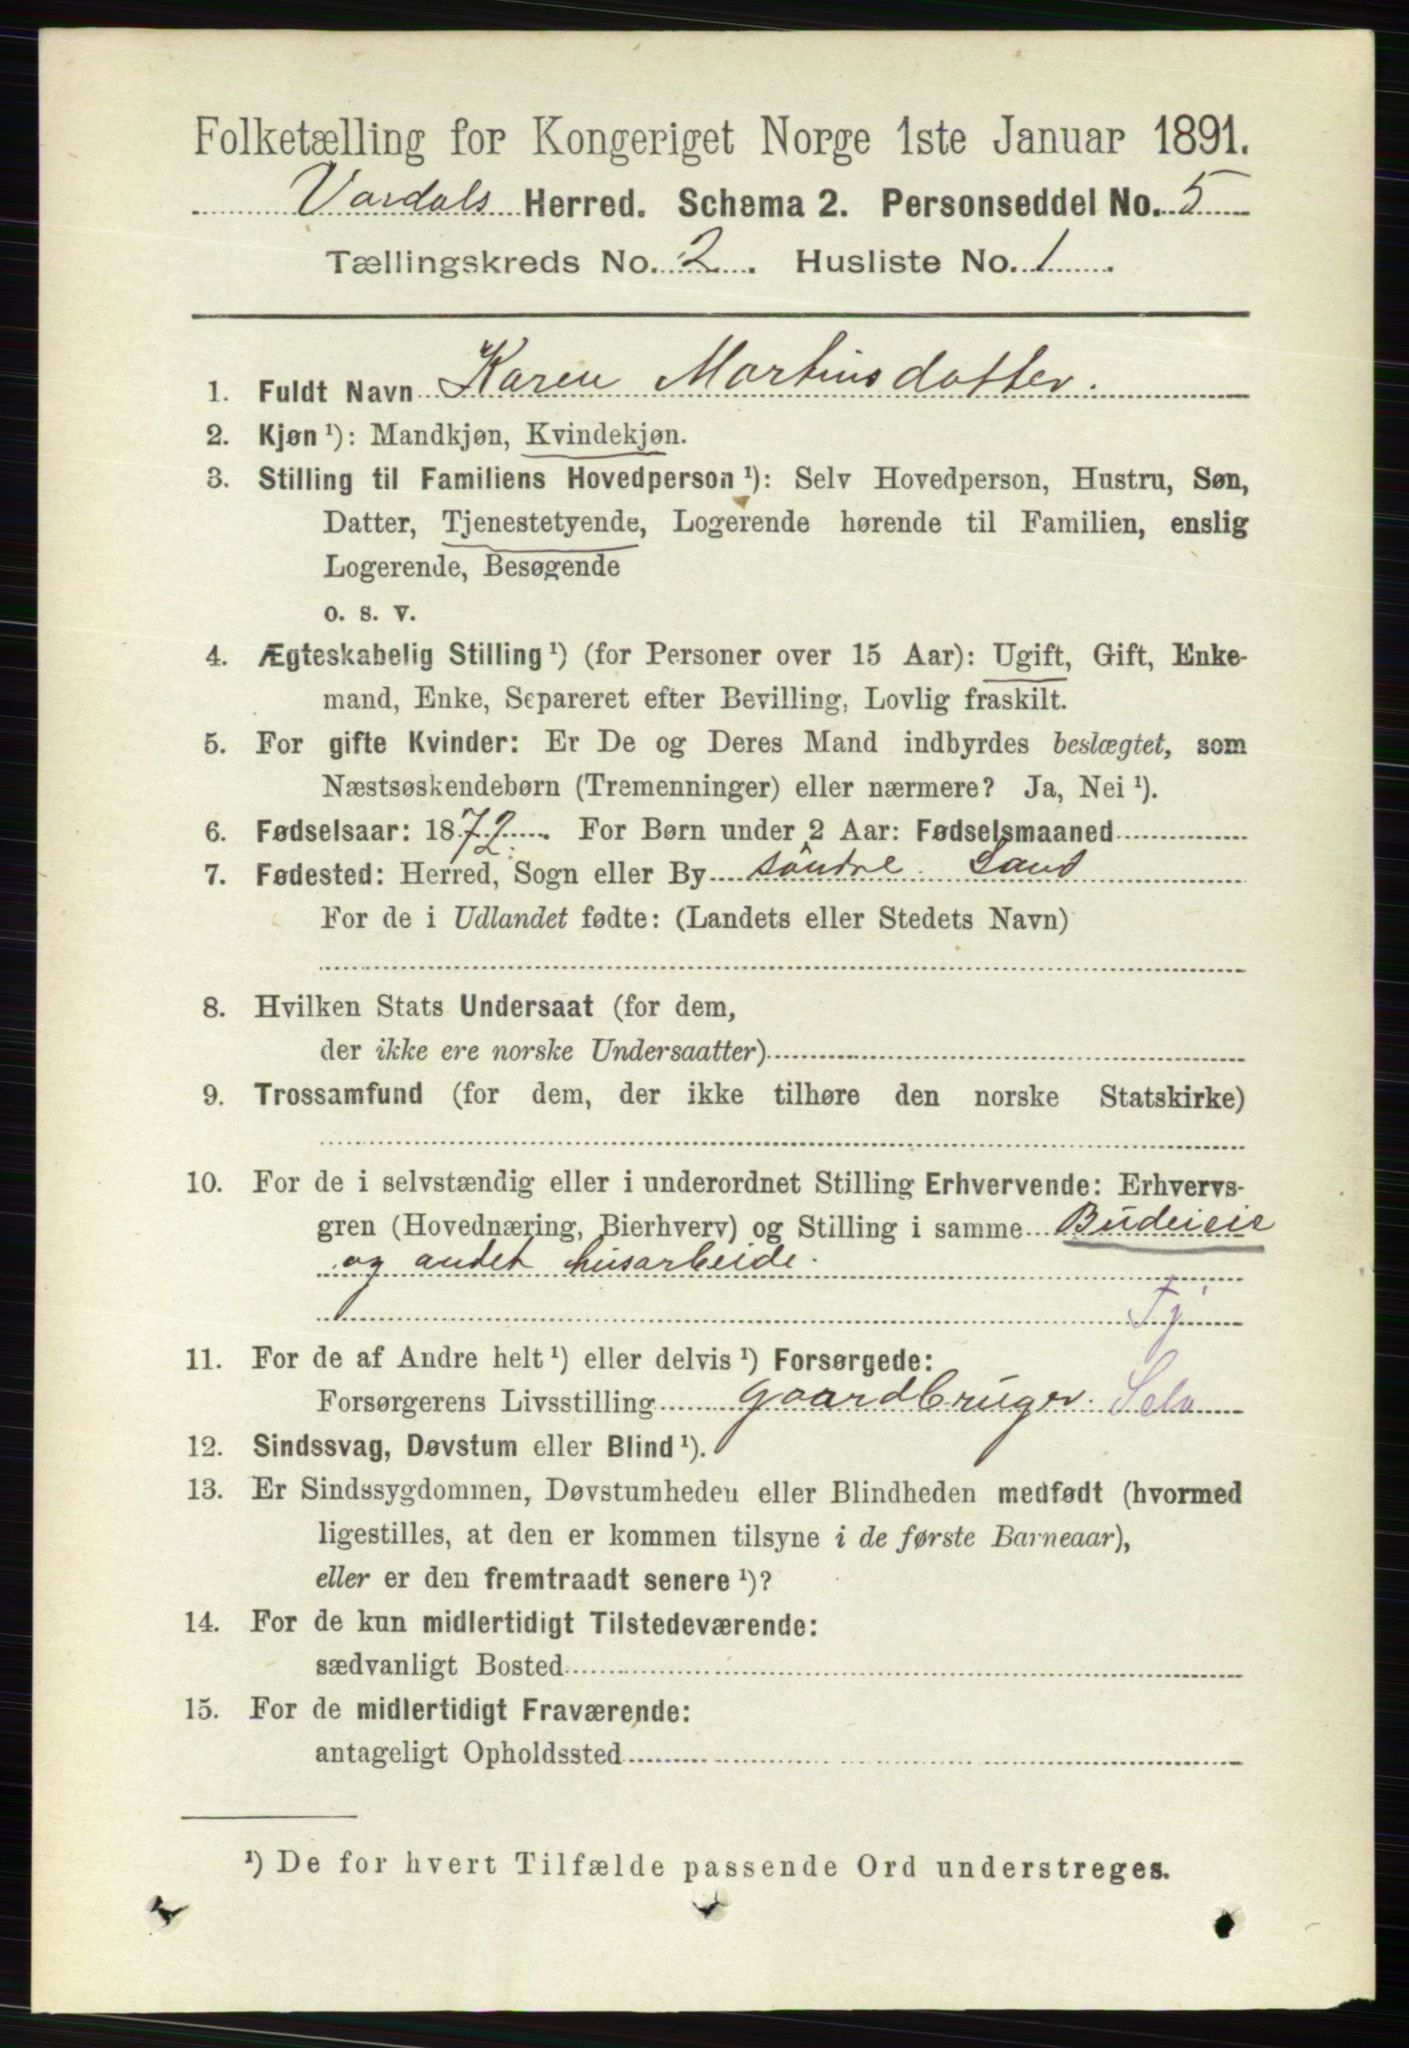 Folketælling for Kongeriget Norge 1ste Januar 1891.
Vardals Herred. Schema 2. Personseddel No. 5
Tællingskreds No. 2. Husliste No. 1.
1. Fuldt Navn Karen Martinsdatter.
2. Kjøn ¹): Mandkjøn, Kvindekjøn.
3. Stilling til Familiens Hovedperson ¹): Selv Hovedperson, Hustru, Søn,
Datter, Tjenestetyende, Logerende hørende til Familien, enslig
Logerende, Besøgende
o. s. v.
4. Ægteskabelig Stilling ¹) (for Personer over 15 Aar): Ugift, Gift, Enke-
mand, Enke, Separeret efter Bevilling, Lovlig fraskilt.
5. For gifte Kvinder: Er De og Deres Mand indbyrdes beslægtet, som
Næstsøskendebørn (Tremenninger) eller nærmere? Ja, Nei ¹).
6. Fødselsaar: 1872. For Børn under 2 Aar: Fødselsmaaned
7. Fødested: Herred, Sogn eller By søndre Land
For de i Udlandet fødte: (Landets eller Stedets Navn)
8. Hvilken Stats Undersaat (for dem,
der ikke ere norske Undersaatter)
9. Trossamfund (for dem, der ikke tilhøre den norske Statskirke)
10. For de i selvstændig eller i underordnet Stilling Erhvervende: Erhvervs-
gren (Hovednæring, Bierhverv) og Stilling i samme Budeieie
og andet husarbeide.
Tj
11. For de af Andre helt ¹) eller delvis ¹) Forsørgede:
Forsørgerens Livsstilling gaardbruger. Selv
12. Sindssvag, Døvstum eller Blind ¹).
13. Er Sindssygdommen, Døvstumheden eller Blindheden medfødt (hvormed
ligestilles, at den er kommen tilsyne i de første Barneaar),
eller er den fremtraadt senere ¹)?
14. For de kun midlertidigt Tilstedeværende:
sædvanligt Bosted
15. For de midlertidigt Fraværende:
antageligt Opholdssted
¹) De for hvert Tilfælde passende Ord understreges.